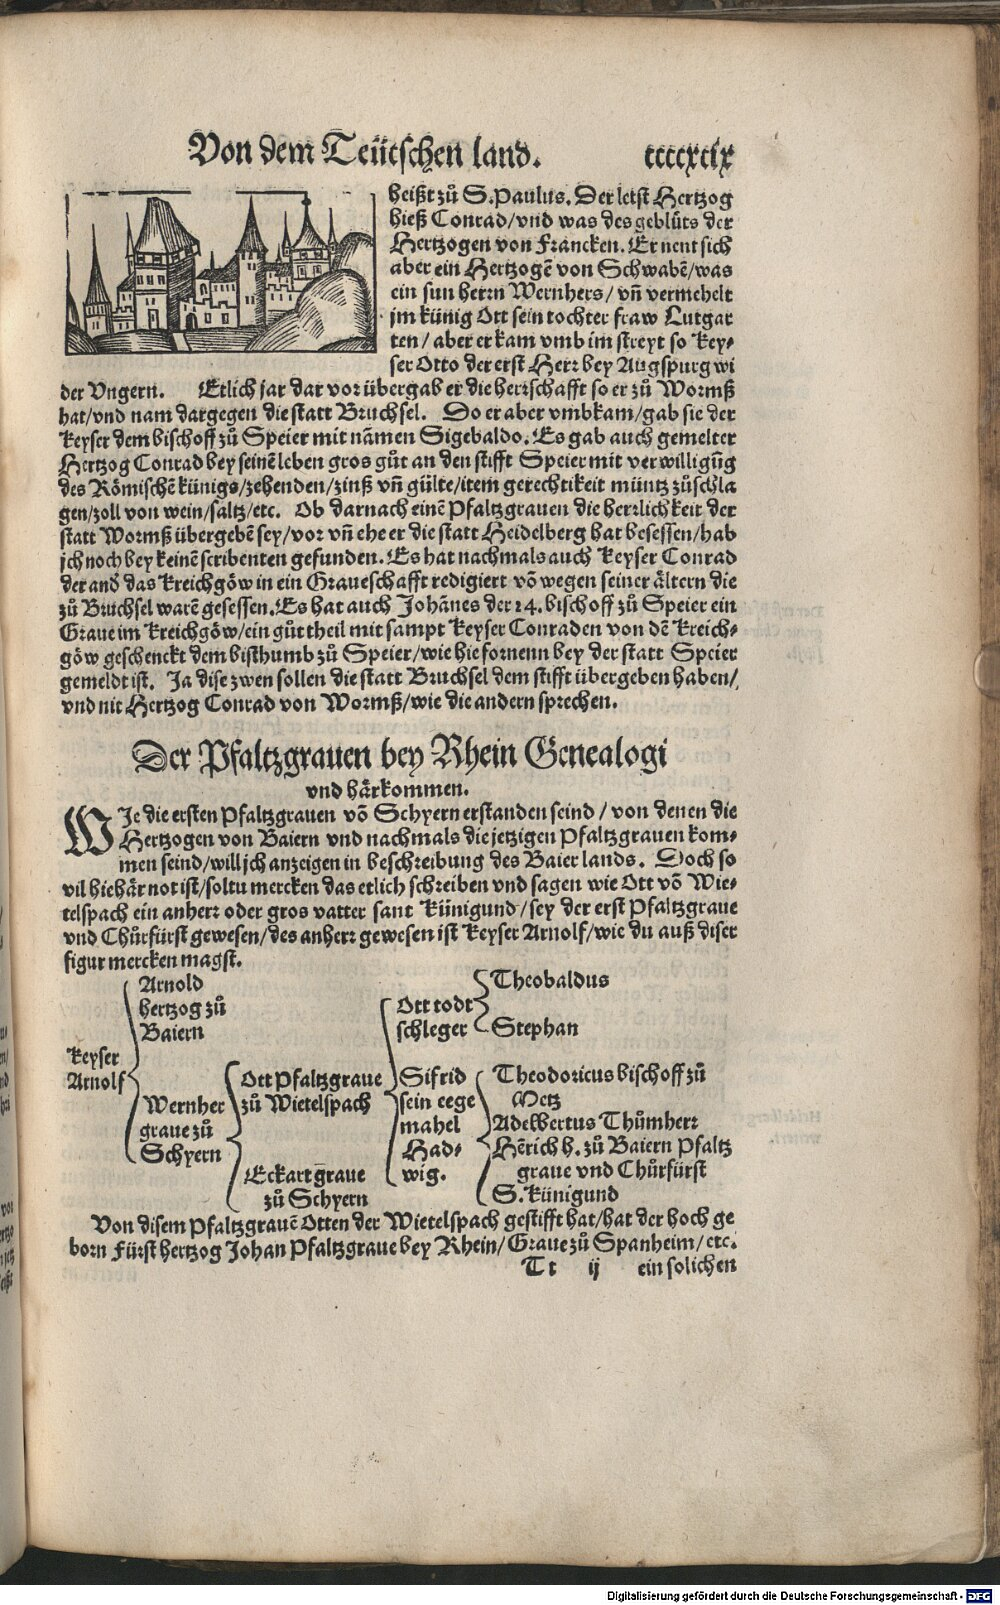 Von dem Teütschen land. ccccxcix
heißt zů S. Paulus. Der letst Hertzog
hieß Conrad/vnd was des geblůts der
Hertzogen von Francken. Er nent sich
aber ein Hertzogē von Schwabē/was
ein sun herrn Wernhers/ vñ vermehelt
jm künig Ott sein tochter fraw Lutgar
ten/ aber er kam vmb im streyt so key-
ser Otto der erst Herr bey Augspurg wi
der Vngern. Etlich jar dar vor übergab er die herrschafft so er zů Wormß
hat/vnd nam dargegen die statt Bruchsel. Do er aber vmbkam/gab sie der
keyser dem bischoff zů Speier mit nāmen Sigebaldo. Es gab auch gemelter
Hertzog Conrad bey seinē leben gros gůt an den stifft Speier mit verwilligūg
des Römischē künigs/zehenden/zinß vñ gülte/item gerechtikeit müntz zůschla
gen/zoll von wein/saltz/etc. Ob darnach einē Pfaltzgrauen die herrlichkeit der
statt Wormß übergebē sey/vor vñ ehe er die statt Heidelberg hat besessen/hab
jch noch bey keinē scribenten gefunden. Es hat nachmals auch keyser Conrad
der and̄ das Kreichgöw in ein Graueschafft redigiert vō wegen seiner ältern die
zů Bruchsel warē gesessen. Es hat auch Johānes der 24. bischoff zů Speier ein
Graue im Kreichgöw/ein gůt theil mit sampt keyser Conraden von dē Kreich-
göw geschenckt dem bisthumb zů Speier/wie hie fornenn bey der statt Speier
gemeldt ist. Ja dise zwen sollen die statt Bruchsel dem stifft übergeben haben/
vnd nit Hertzog Conrad von Wormß/wie die andern sprechen.
Der Pfaltzgrauen bey Rhein Genealogi
vnd härkommen.
WJe die ersten Pfaltzgrauen vō Schyern erstanden seind / von denen die
Hertzogen von Baiern vnd nachmals die jetzigen Pfaltzgrauen kom-
men seind/will jch anzeigen in beschreibung des Baierlands. Doch so
vil hiehär not ist/soltu mercken das etlich schreiben vnd sagen wie Ott vō Wie-
telspach ein anherr oder gros vatter sant Künigund/sey der erst Pfaltzgraue
vnd Chůrfürst gewesen/des anherr gewesen ist keyser Arnolf/wie du auß diser
figur mercken magst.
Keyser
Arnolf
Arnold
hertzog zů
Baiern
Wernher
graue zů
Schyern
Ott Pfaltzgraue
zů Wietelspach
Eckart graue
zů Schyern
Ott todt
schleger
Sifrid
sein eege
mahel
Had-
wig.
Theobaldus
Stephan
Theodoricus bischoff zů
Metz
Adelbertus Thůmherr
Hērich h. zů Baiern Pfaltz
graue vnd Chůrfürst
S. Künigund
Von disem Pfaltzgrauē Otten der Wietelspach gestifft hat/hat der hoch ge
born Fürst hertzog Johan Pfaltzgraue bey Rhein/Graue zů Spanheim/etc.
Tt ij ein solichen
Digitalisierung gefördert durch die Deutsche Forschungsgemeinschaft - DFG